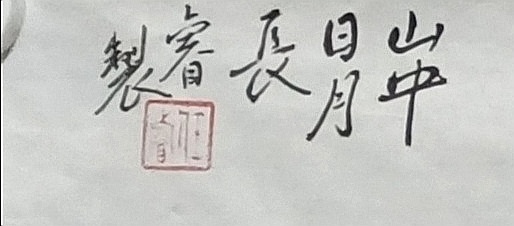 山中
日月
長
睿
製